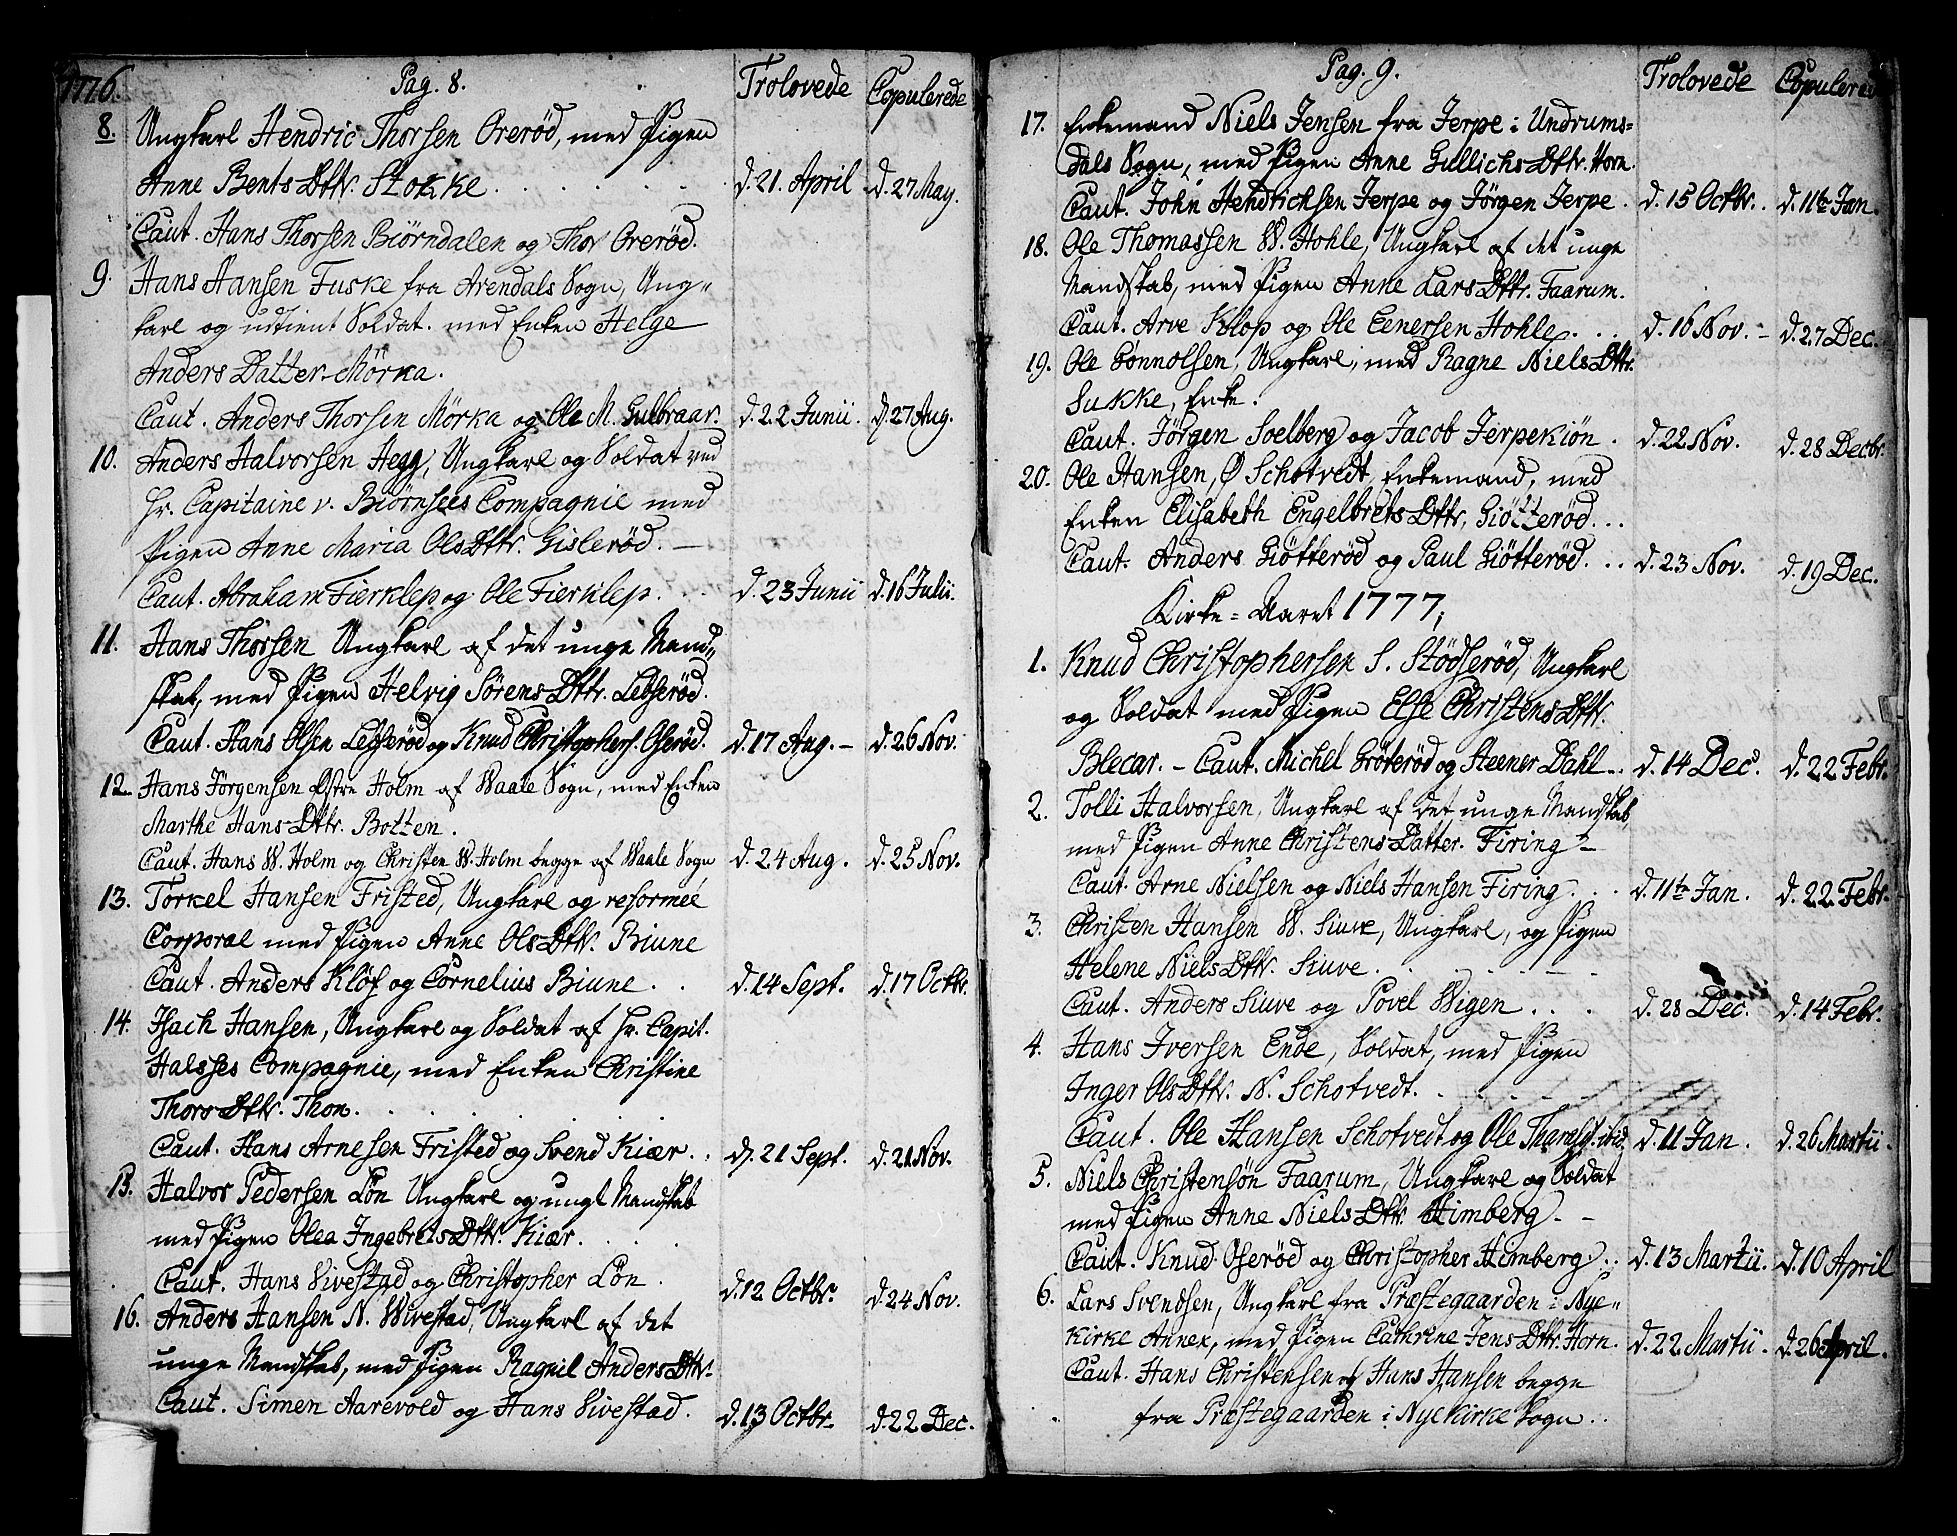 1776.
Pag. 8.
Trolovede
Copulerede
8. Ungkarl Hendric Thorsen Orerød, med Pigen
Anne Bents Dttr. Stokke . . . d. 21. April d. 27 May.
Caut. Hans Thorsen Biørndalen og Thor Orerød.
9. Hans Hansen Fuske fra Arendals Sogn, Ung„
karl og udtient Soldat. med Enken Helge
Anders Datter Mörka.
Caut. Anders Thorsen Mörka og Ole M. Gulbraar. d. 22 Junii. d. 27 Aug.
10. Anders Halvorsen Hegg, Ungkarl og Soldat ved
Hr. Capitaine v. Biørnsees Compagnie med
Pigen Anne Maria Ols Dttr. Gislerød. —
Caut. Abraham Fierklep og Ole Fierklep. d. 23 Junii d. 16 Julii.
11. Hans Thorsen Ungkarl af det unge Mand„
skab, med Pigen Helvig Sörens Dttr. Lebserød.
Caut. Hans Olsen Lebserød og Knud Christophers. Oserød. d. 17 Aug. – d. 26 Nov.
12. Hans Jörgensen Østre Holm af Waale Sogn, med Enken
Marthe Hans Dttr. Botten.
Caut. Hans W. Holm og Christen W. Holm begge af Waale Sogn d. 24 Aug. d. 25 Nov.
13. Torkel Hansen Fristed, Ungkarl og reformeé
Corporal med Pigen Anne Ols Dttr. Biune
Caut. Anders Klöf og Cornelius Biune . . d. 14 Sept. d. 17 Octbr.
14. Isach Hansen, Ungkarl og Soldat af Hr. Capit.
Halsses Compagnie, med Enken Christine
Thors Dttr. Thon. . . . . .
Caut. Hans Arnesen Fristed og Svend Kiær . . d. 21 Sept. d. 21 Nov.
15. Halvor Pedersen Lön Ungkarl og ungt Mandskab
med Pigen Olea Ingebrets Dttr. Kiær. . . .
Caut. Hans Vivestad og Christopher Lön . d. 12 Octbr. d. 24 Nov.
16. Anders Hansen N. Wivestad, Ungkarl af det
unge Mandskab, med Pigen Ragnil Anders Dttr.
Caut. Simen Aarevold og Hans Vivestad. d. 13 Octbr. d. 22 Dec.
Pag. 9.
Trolovede
Copulerede
17. Enkemand Niels Jensen fra Jerpe i Undrums=
dals Sogn, med Pigen Anne Gullichs Dttr. Horn.
Caut. John Hendrichsen Jerpe og Jörgen Jerpe . d. 15 Octbr. . d. 11te Jan.
18. Ole Thomassen W. Hohle, Ungkarl af det unge
Mandskab, med Pigen Anne Lars Dttr. Faarum.
Caut. Arve Klop og Ole Eenersen Hohle. . . . d. 16 Nov. – d. 27 Dec.
19. Ole Gönnolsen, Ungkarl, med Ragne Niels Dttr.
Sukke, Enke.
Caut. Jörgen Soelberg og Jacob Jerpekiön . d. 22 Nov. d. 28 Decbr.
20. Ole Hansen, Ø Schotvedt, Enkemand, med
Enken Elisabeth Engelbrets Dttr. Giötterød. . .
Caut. Anders Giötterød og Paul Giötterød. . . d. 23 Nov. d. 19 Dec.
Kirke=Aaret 1777;
1. Knud Christophersen S. Stödserød, Ungkarl
og Soldat med Pigen Else Christens Dttr.
Blecar. – Caut. Michel Gröterød og Steener Dahl . . d. 14 Dec. d. 22 Febr.
2. Tolli Halvorsen, Ungkarl af det unge Mandskab,
med Pigen Anne Christens Datter. Firing –
Caut. Arne Nielsen og Niels Hansen Firing . . . d. 11te Jan. d. 22 Febr.
3. Christen Hansen W. Siuve, Ungkarl, og Pigen
Helene Niels Dttr. Siuve . . . .
Caut. Anders Siuve og Povel Wigen . . . d. 28 Dec. d. 14 Febr.
4. Hans Iversen Ende, Soldat, med Pigen
Inger Ols Dttr. N. Schotvedt. . . .
Caut. Ole Hansen Schotvedt og Ole ibid. d. 11 Jan. d. 26 Martii.
5. Niels Christensön Faarum, Ungkarl og Soldat
med Pigen Anne Niels Dttr. Himberg. –
Caut. Knud Oserød og Christopher Himberg . . d. 13 Martii. d. 10 April
6. Lars Svendsen, Ungkarl fra Præstegaarden i Nye„
Kirke Annex, med Pigen Cathrine Jens Dttr. Horn. d. 22 Martii. d. 26 April.
Caut. Hans Christensen og Hans Hansen begge
fra Præstegaarden i Nyekirke Sogn . .